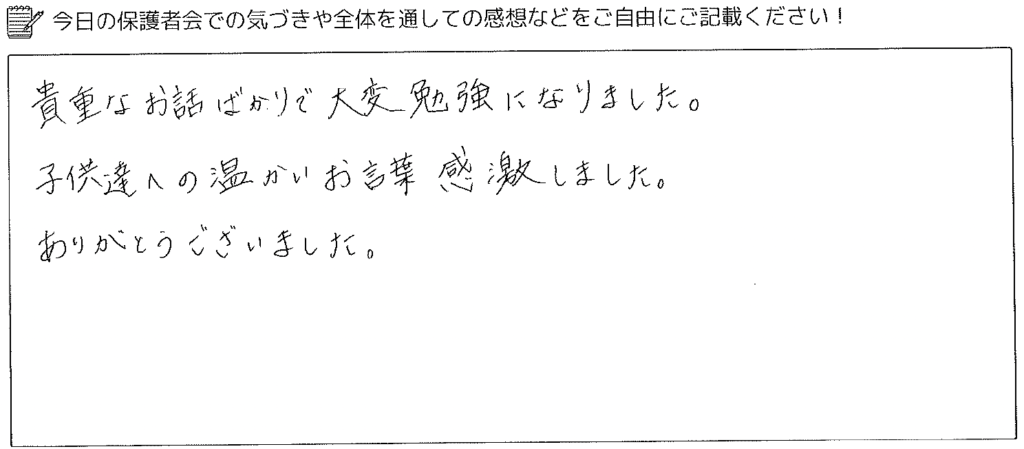 今日の保護者会での気づきや全体を通しての感想などをご自由にご記載ください！
貴重なお話ばかりで大変勉強になりました。
子供達への温かいお言葉感激しました。
ありがとうございました。